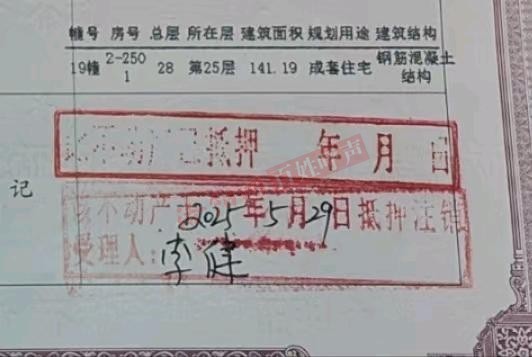 幢号 房号 总层 所在层 建筑面积 规划用途 建筑结构
19幢 2-2501 28 第25层 141.19 成套住宅 钢筋混凝土结构
不动产已抵押 年 月 日
百姓呼声
记
该不动产 2025年5月29日抵押注销
受理人: 李健